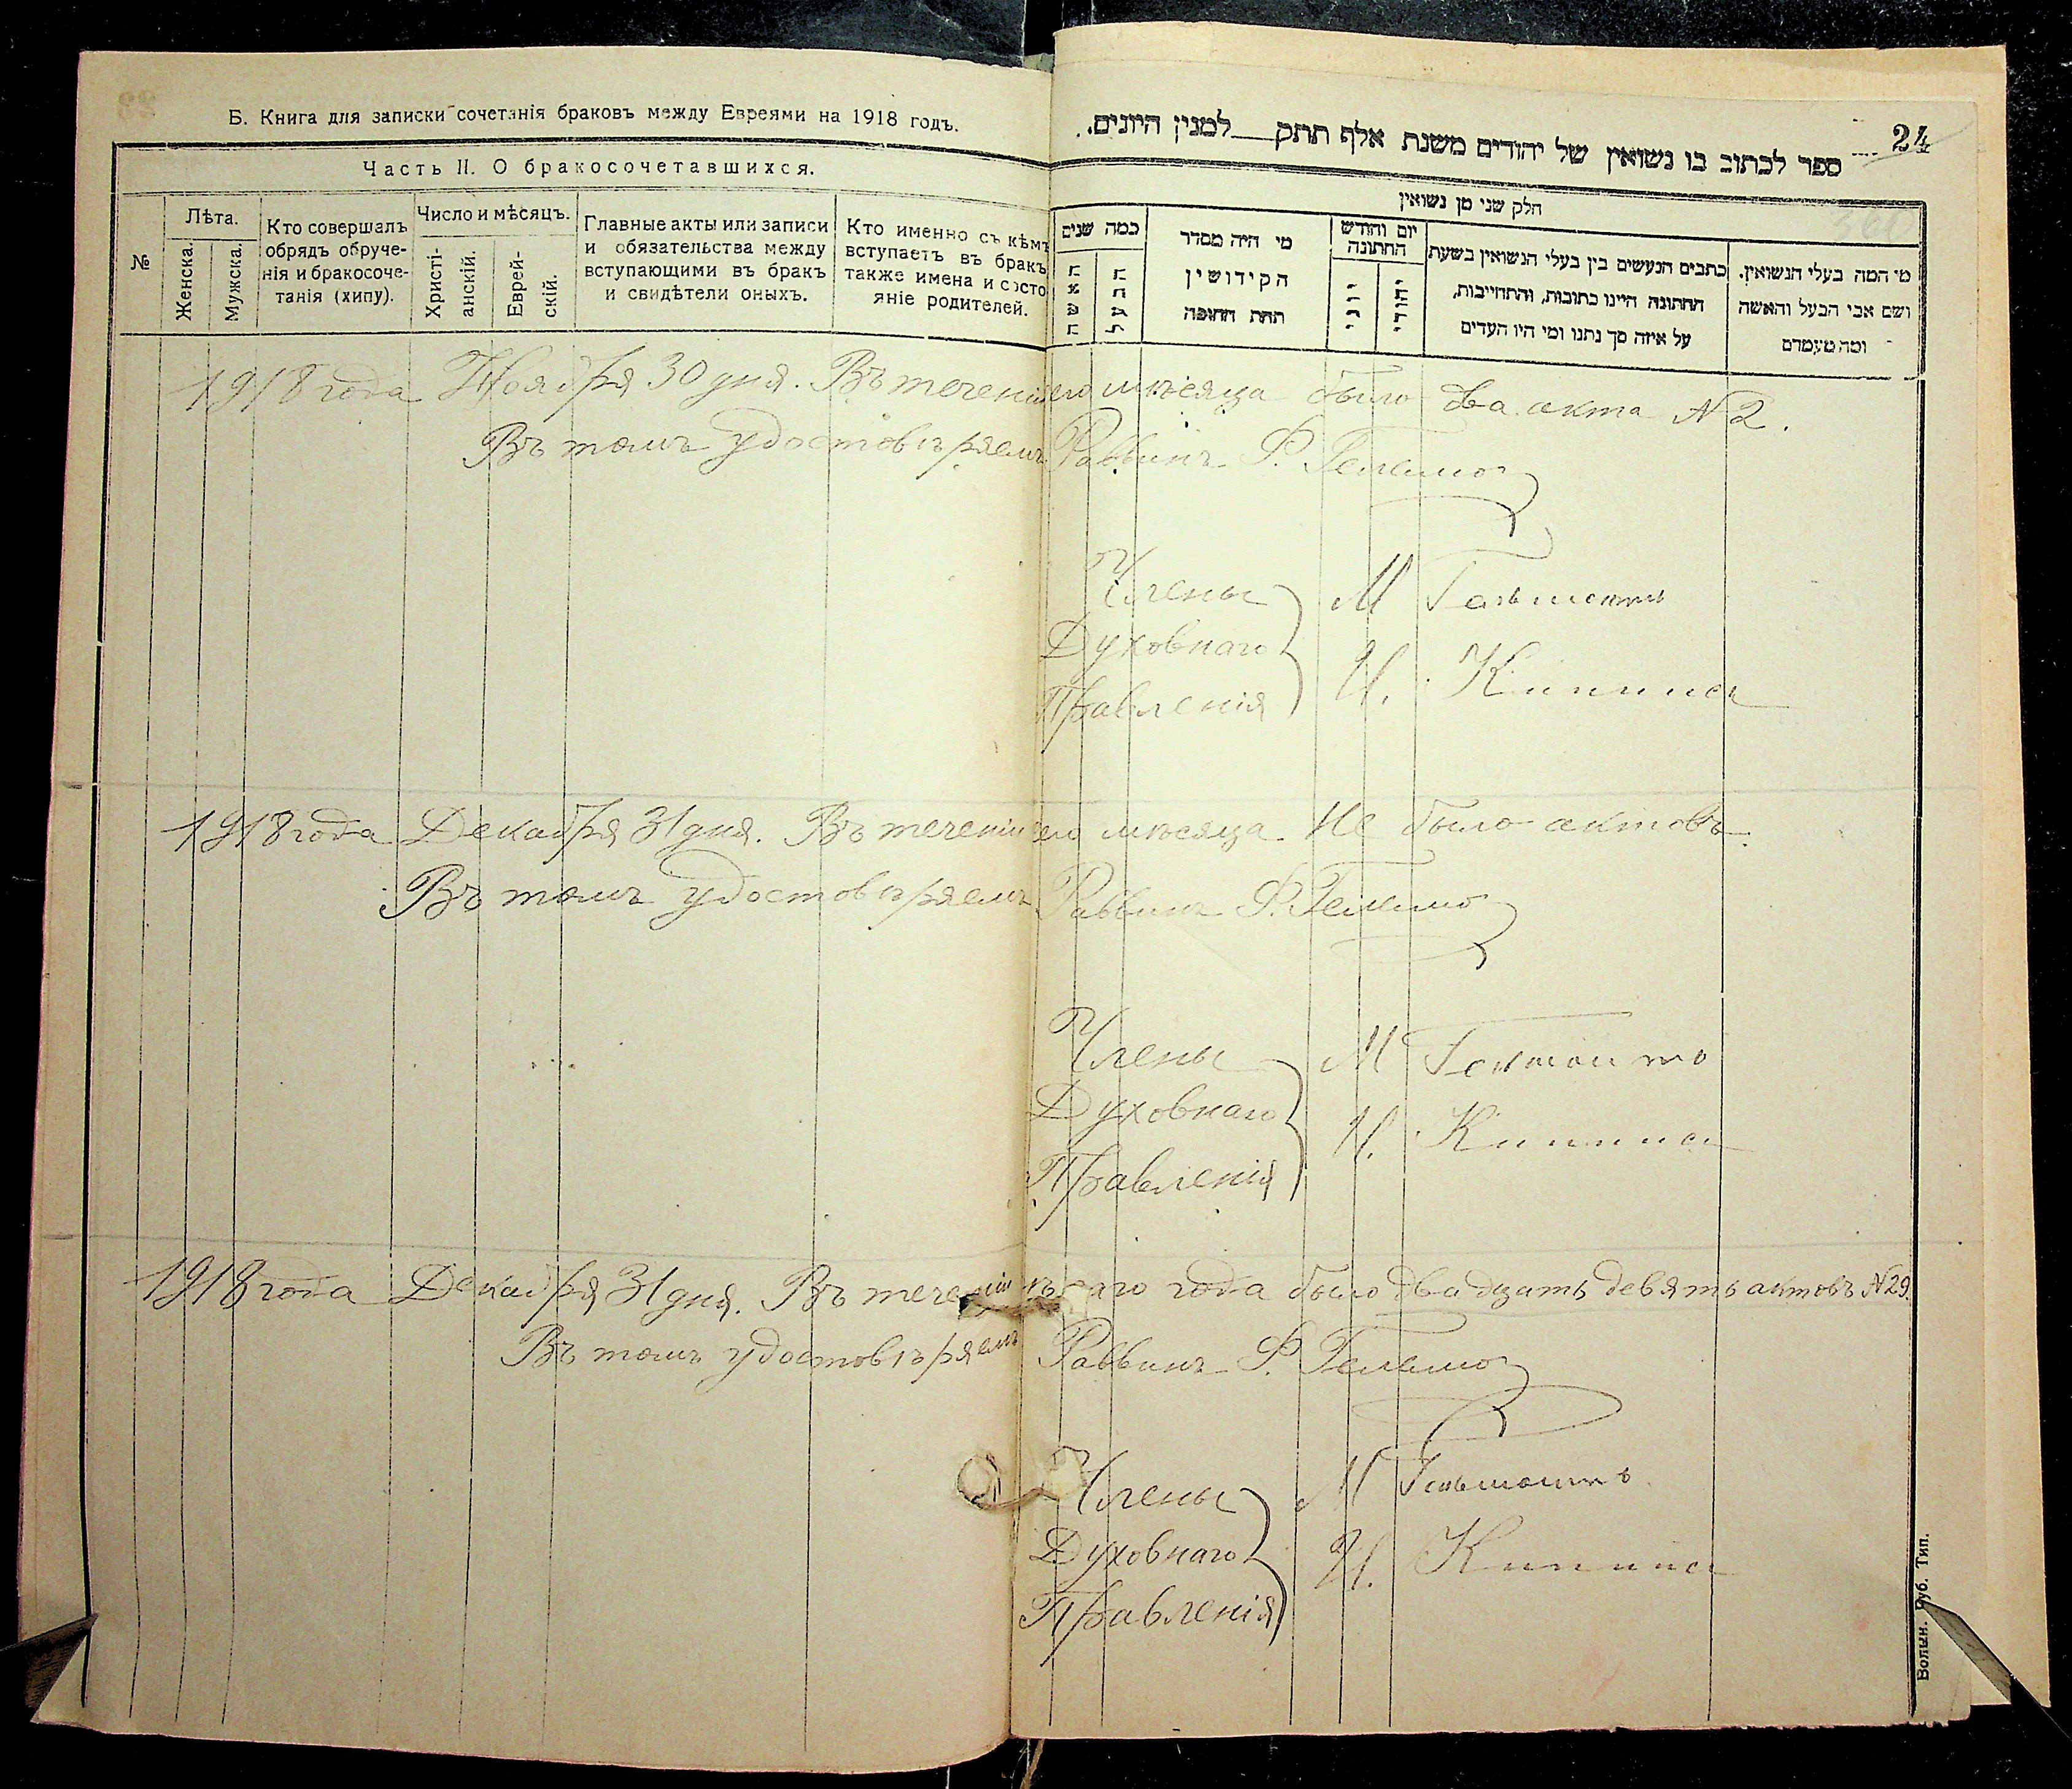 Б. Книга для записки сочетанія браковъ между Евреями на 1918 годъ.
Часть II. О бракосочетавшихся.
№
Лѣта.
Женска.
Мужска.
Кто совершалъ
обрядъ обруче-
нія и бракосоче-
танія (хипу).
Число и мѣсяцъ.
Христі-
анскій.
Еврей-
скій.
Главные акты или записи
и обязательства между
вступающими въ бракъ
и свидѣтели оныхъ.
Кто именно съ кѣмъ
вступаетъ въ бракъ
также имена и состо
яніе родителей.
24
ספר לכתוב בו נשואין של יהודים משנת אלף תתק למנין היונים.
חלק שני מן נשואין
כמה שנים
האשה
הבעל
מי היה מסדר
הקידושין
תחת החופה
יום וחודש
החתונה
יוני
יהודי
כתבים הנעשים בין בעלי הנשואין בשעת
החתונה היינו כתובות, והתחייבות,
על איזה סך נתנו ומי היו העדים
מי המה בעלי הנשואין.
ושם אבי הבעל והאשה
ומה מעמדם
1918 года Ноября 30 дня. Въ теченіи сего мѣсяца было два акта № 2.
Въ томъ удостовѣряемъ Раввинъ Ф.
Члены М
Духовнаго И. Кипнисъ
Правленія
1918 года Декабря 31 дня. Въ теченіи сего мѣсяца не было актовъ.
Въ томъ удостовѣряемъ Раввинъ Ф.
Члены М
Духовнаго И. Кипнисъ
Правленія
1918 года Декабря 31 дня. Въ теченіи года было двадцать девять актовъ № 29.
Въ томъ удостовѣряемъ Раввинъ Ф.
Члены М
Духовнаго И. Кипнисъ
Правленія
Волын. Губ. Тип.